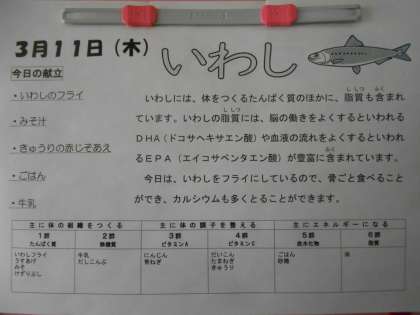 3月11日(木)
いわし
今日の献立
・いわしのフライ
・みそ汁
・きゅうりの赤じそあえ
・ごはん
・牛乳
いわしには、体をつくるたんぱく質のほかに、脂質も含まれ
ています。いわしの脂質には、脳の働きをよくするといわれる
DHA(ドコサヘキサエン酸)や血液の流れをよくするといわれ
るEPA(エイコサペンタエン酸)が豊富に含まれています。
今日は、いわしをフライにしているので、骨ごと食べること
ができ、カルシウムも多くとることができます。
主に体の組織をつくる 主に体の調子を整える 主にエネルギーになる
1群 2群 3群 4群 5群 6群
たんぱく質 無機質 ビタミンA ビタミンC 炭水化物 脂質
いわしフライ 牛乳 にんじん だいこん ごはん 油
うすあげ だしこんぶ 青ねぎ たまねぎ 砂糖
みそ きゅうり
けずりぶし